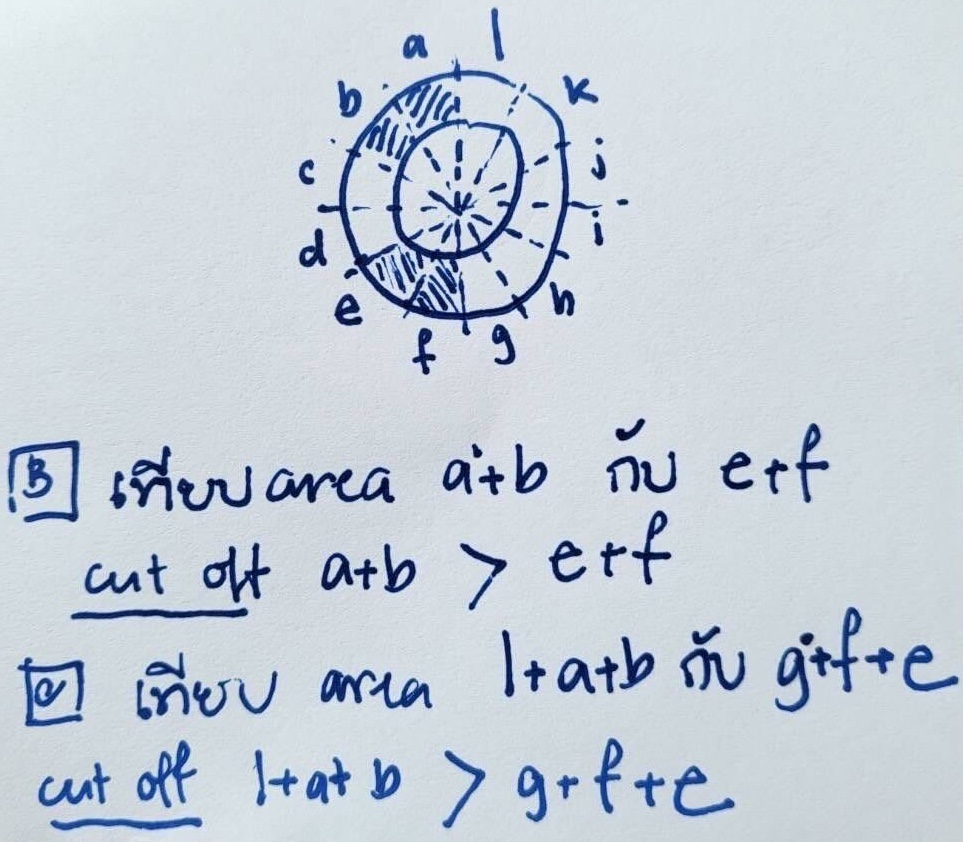 a l
b k
c j
d i
e h
f g
B เทียบ area a+b กับ e+f
cut off a+b > e+f
เทียบ area l+a+b กับ g+f+e
cut off l+a+b > g+f+e